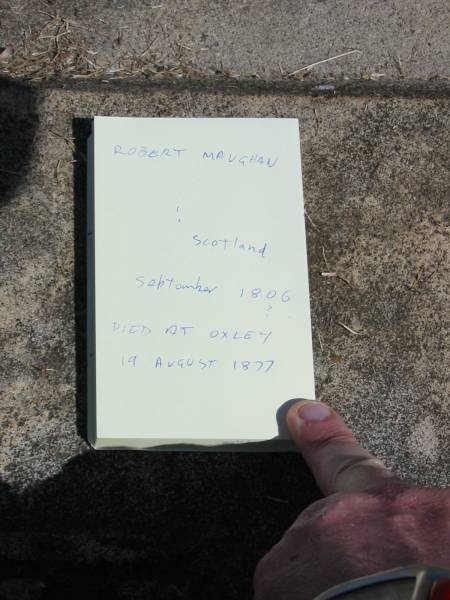 ROBERT MAUGHAN
:
Scotland
September 1806
?
DIED AT OXLEY
19 AUGUST 1877